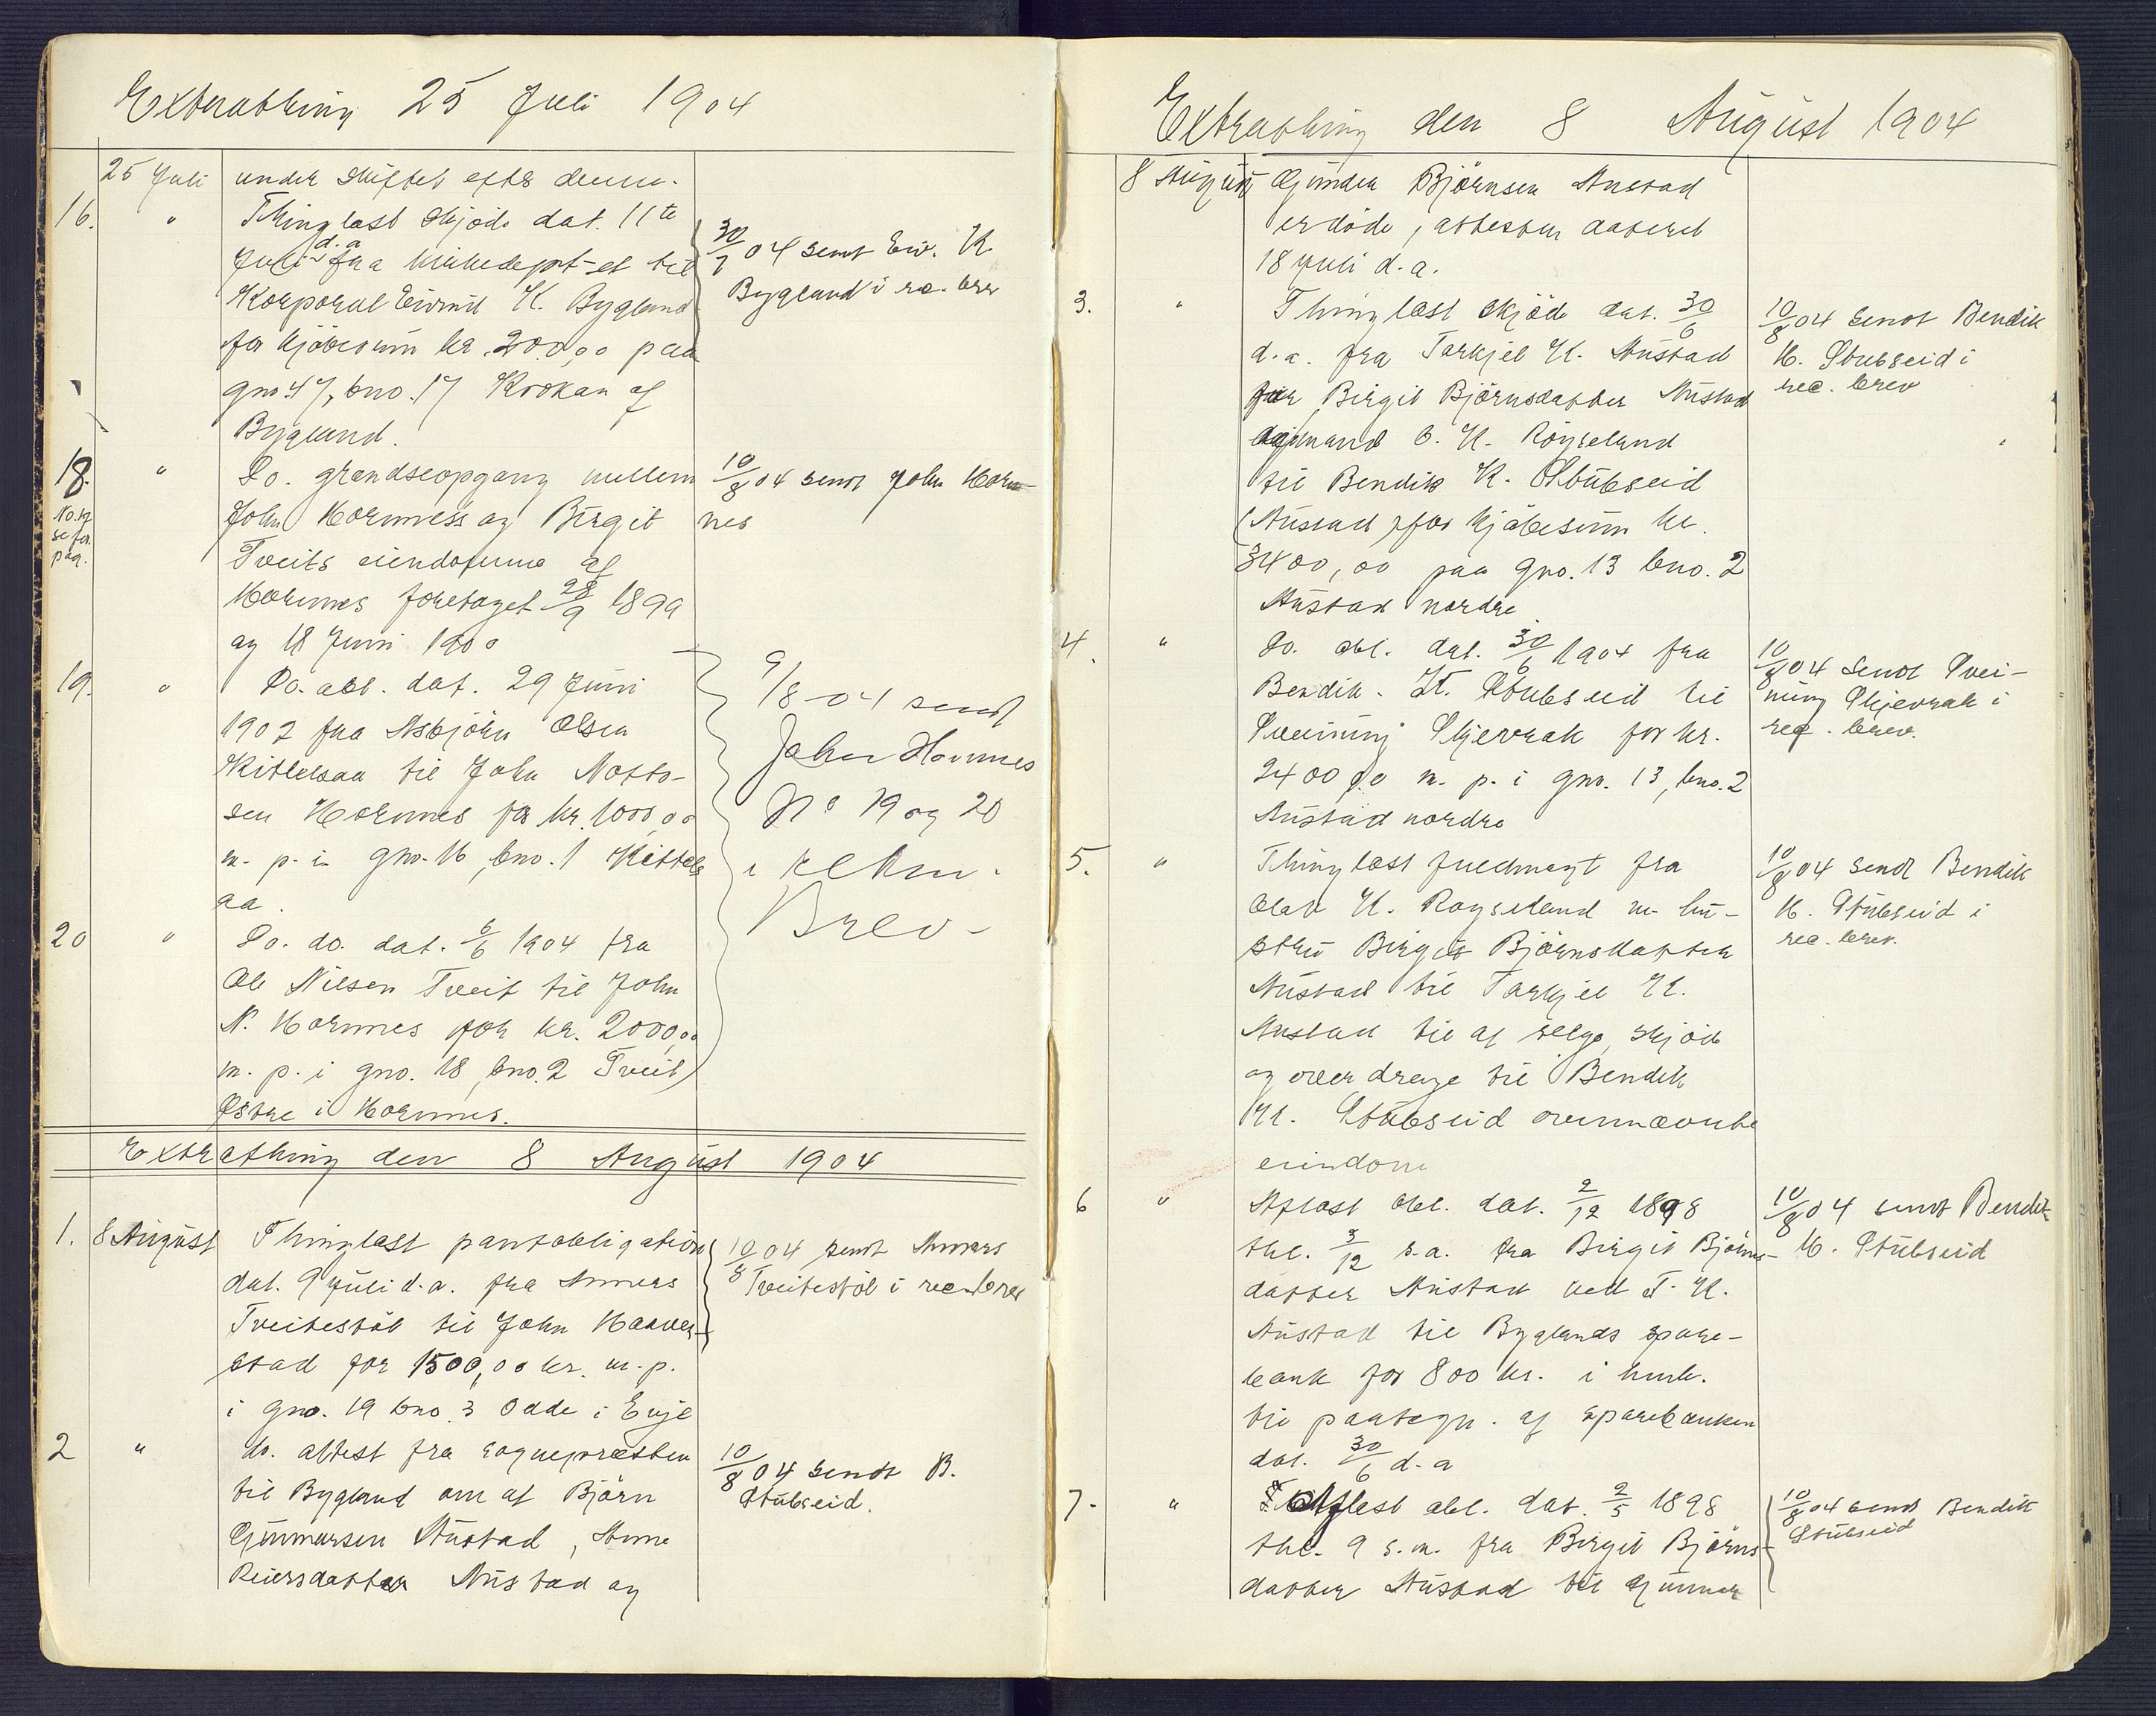 Extrathing 25 Juli 1904
25 Juli under skiftet efter denne.
16. " Thinglæst skjøde dat. 11te
Juli d. a. fra kirkedept-et til
Korporal Eivind K. Bygland
for kjøbesum kr. 200,00 paa
gno. 47, bno. 17 Krokan af
Bygland.
30/7 04 sendt Eiv. K.
Bygland i rec. brev
18. " Do. grændseopgang mellem
No. 17
se for.
pag.
John Hornness og Birgit
Tveits eiendomme af
Hornnes foretaget 28/9 1899
og 18 Juni 1900
10/8 04 sendt John Horn-
nes
19. " Do. obl. dat. 29 Juni
1902 fra Asbjörn Olsen
Kittelsaa til John Notto-
sen Hornnes for kr. 1000,00
m. p. i gno. 16, bno. 1 Kittels
aa.
20 " Do. do. dat. 6/6 1904 fra
Ole Nilsen Tveit til John
N. Hornnes for kr. 2000,00
m. p. i gno. 18, bno. 2 Tveit
Østre i Hornnes.
9/8-04 sendt
John Hornnes
No 19 og 20
i rekm.
Brev-
Extrathing den 8 August 1904
1. 8 August Thinglæst pantobligation
dat. 9 Juli d. a. fra Anners
Tveitestöl til John Haaver-
stad for 1500,00 kr. m. p.
i gno. 19 bno. 3 Odde i Evje
10/8 04 sendt Anners
Tveitestöl i rec. brev
2 " do. attest fra sognepræsten
til Bygland om at Björn
Gunnarsen Austad, Anne
Reiersdatter Austad og
10/8 04 sendt B.
Stubseid.
Extrathing den 8 August 1904
8 August Gunder Björnsen Austad
er döde, attesten dateret
18 Juli d. a.
3. " Thinglæst skjöde dat. 30/6
d. a. fra Tarkjel K. Austad
for Birgit Björnsdatter Austad
og mand O. K. Röyseland
til Bendik K. Stubseid
(Austad) for kjöbesum kr.
3400,00 paa gno. 13 bno. 2
Austad nordre
10/8 04 sendt Bendik
K. Stubseid i
rec. brev
4. " Do. obl. dat. 30/6 1904 fra
Bendik K. Stubseid til
Sveinung Skjevrak for kr.
2400,00 m. p. i gno. 13, bno. 2
Austad nordre
10/8 04 sendt Svei-
nung Skjevrak i
rec. brev.
5. " Thinglæst fuldmagt fra
Olav K. Royseland m. hu-
stru Birgit Björnsdatter
Austad til Tarkjel K.
Austad til at selge, skjöde
og overdrage til Bendik
K. Stubseid ovennævnte
eiendom
10/8 04 sendt Bendik
K. Stubseid i
rec. brev.
6 " Aflæst obl. dat. 2/12 1898
thl. 3/12 s. a. fra Birgit Björns-
datter Austad ved T. K.
Austad til Byglands spare-
bank for 800 kr. i henh.
til paategn. af sparebanken
dat. 30/6 d. a
10/8 04 sendt Bendik
K. Stubseid
7. " Aflæst obl. dat. 2/5 1898
thl. 9 s. m. fra Birgit Björns-
datter Austad til Gunnar
10/8 04 sendt Bendik
Stubseid